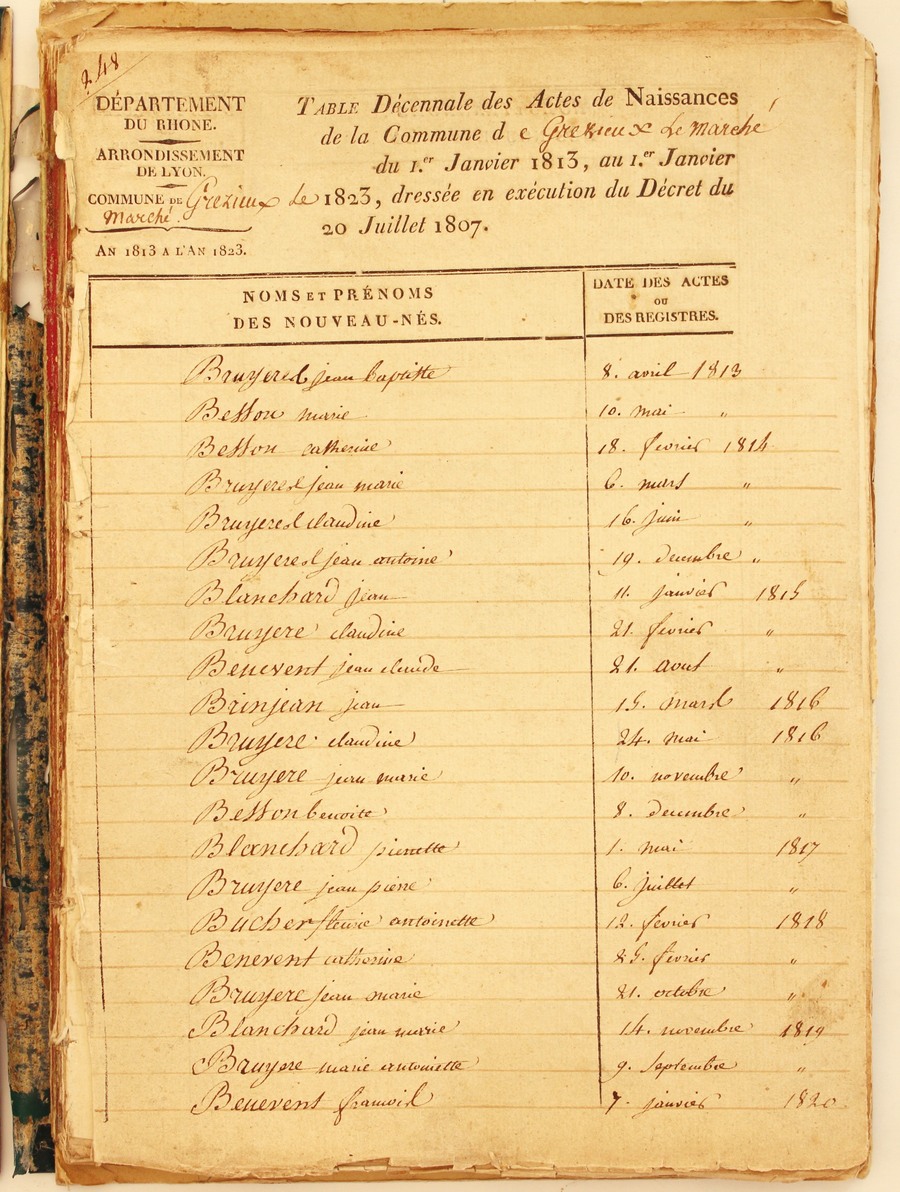 248
DÉPARTEMENT
DU RHONE.
ARRONDISSEMENT
DE LYON.
COMMUNE DE Grezieux Le
Marché.
AN 1813 A L'AN 1823.
TABLE Décennale des Actes de Naissances
de la Commune d e Grezieux Le Marché
du 1.er Janvier 1813, au 1.er Janvier
1823, dressée en exécution du Décret du
20 Juillet 1807.
NOMS ET PRÉNOMS
DES NOUVEAU-NÉS.
DATE DES ACTES
OU
DES REGISTRES.
Bruyeres jean baptiste 8. avril 1813
Besson marie 10. mai "
Besson catherine 18. fevrier 1814
Bruyeres jean marie 6. mars "
Bruyeres claudine 16. juin "
Bruyeres jean antoine 19. decembre "
Blanchard jean 11. janvier 1815
Bruyere claudine 21. fevrier "
Benevent jean claude 21. aout "
Brinjean jean 15. mars 1816
Bruyere claudine 24. mai 1816
Bruyere jean marie 10. novembre "
Besson benoite 8. decembre "
Blanchard pierrette 1. mai 1817
Bruyere jean pierre 6. juillet "
Bucher fleurie antoinette 12. fevrier 1818
Benevent catherine 25. fevrier "
Bruyere jean marie 21. octobre "
Blanchard jean marie 14. novembre 1819
Bruyere marie antoinette 9. septembre "
Benevent francois 7. janvier 1820